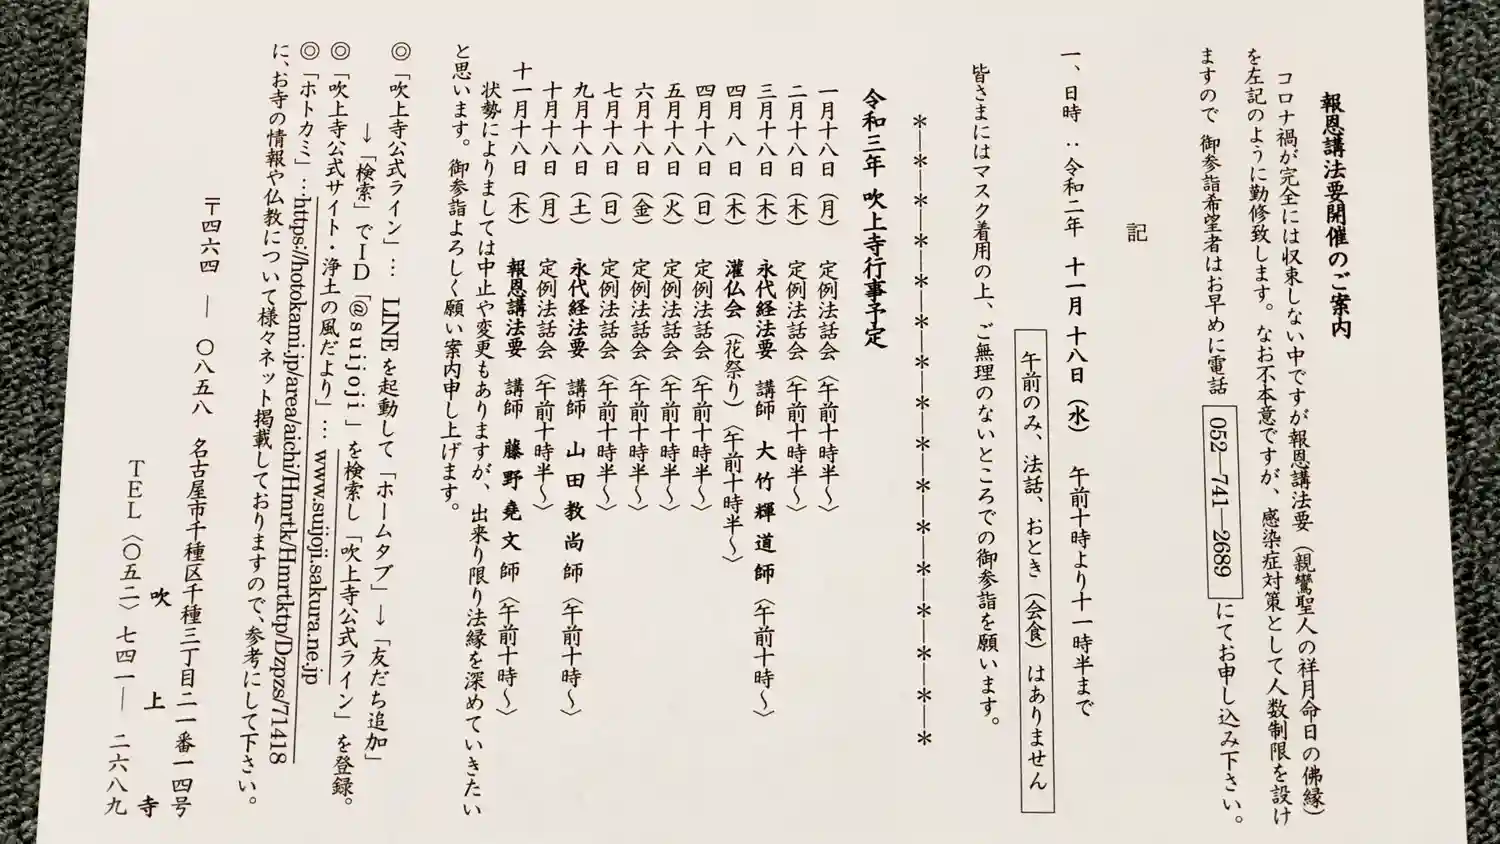 報恩講法要開催のご案内
コロナ禍が完全には収束しない中ですが報恩講法要（親鸞聖人の祥月命日の佛縁）
を左記のように勤修致します。なお不本意ですが、感染症対策として人数制限を設け
ますので 御参詣希望者はお早めに電話 052―741―2689 にてお申し込み下さい。
記
一、日時：令和二年 十一月 十八日（水） 午前十時より十一時半まで
午前のみ、法話、おとき（会食）はありません
皆さまにはマスク着用の上、ご無理のないところでの御参詣を願います。
＊―＊―＊―＊―＊―＊―＊―＊―＊―＊―＊―＊―＊―＊―＊―＊
令和三年 吹上寺行事予定
一月十八日（月） 定例法話会〈午前十時半～〉
二月十八日（木） 定例法話会〈午前十時半～〉
三月十八日（木） 永代経法要 講師 大竹輝道師〈午前十時～〉
四月 八 日（木） 灌仏会（花祭り）〈午前十時半～〉
四月十八日（日） 定例法話会〈午前十時半～〉
五月十八日（火） 定例法話会〈午前十時半～〉
六月十八日（金） 定例法話会〈午前十時半～〉
七月十八日（日） 定例法話会〈午前十時半～〉
九月十八日（土） 永代経法要 講師 山田教尚師〈午前十時～〉
十月十八日（月） 定例法話会〈午前十時半～〉
十一月十八日（木） 報恩講法要 講師 藤野堯文師〈午前十時～〉
状勢によりましては中止や変更もありますが、出来り限り法縁を深めていきたい
と思います。御参詣よろしく願い案内申し上げます。
◎「吹上寺公式ライン」… LINEを起動して「ホームタブ」→「友だち追加」
→「検索」でID「@suijoji」を検索し「吹上寺公式ライン」を登録。
◎「吹上寺公式サイト・浄土の風だより」… www.suijoji.sakura.ne.jp
◎「ホトカミ」…https://hotokami.jp/area/aichi/Hmrtk/Hmrtktp/Dzpzs/71418
に、お寺の情報や仏教について様々ネット掲載しておりますので、参考にして下さい。
〒四六四 ― 〇八五八 名古屋市千種区千種三丁目二一番一四号
吹上寺
TEL〈〇五二〉七四一― 二六八九